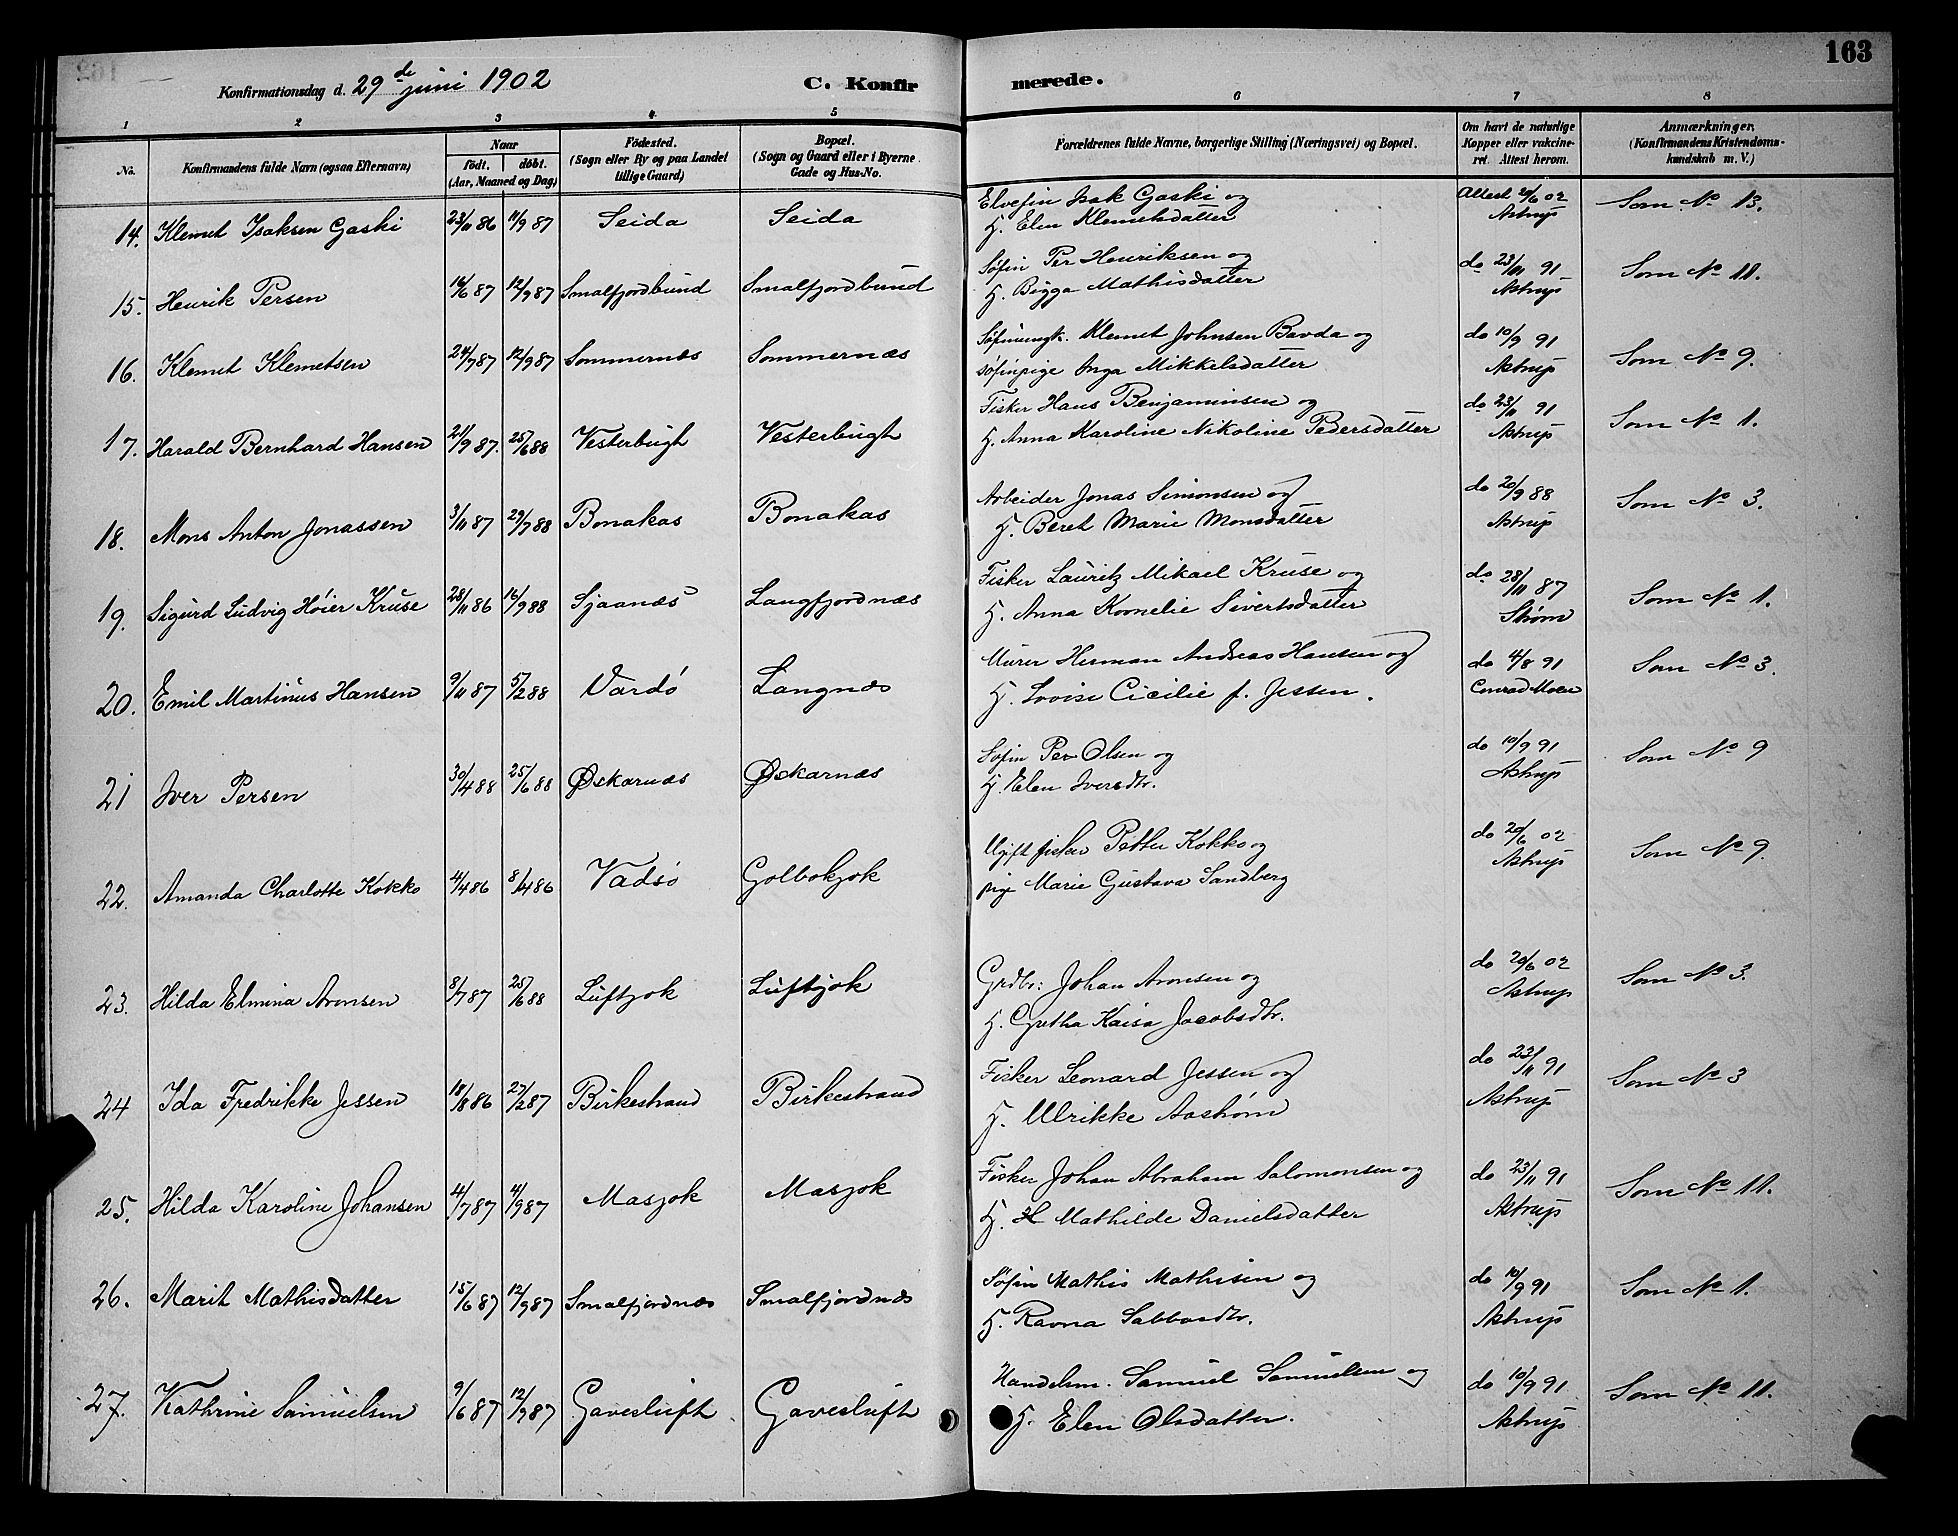 163
Konfirmationsdag d. 29de juni 1902
C. Konfirmerede.
1 2 3 4 5 6 7 8
No. Konfirmandens fulde Navn (ogsaa Efternavn) Naar født. døbt. (Aar, Maaned og Dag) Fødested. (Sogn eller By og paa Landet tillige Gaard) Bopæl. (Sogn og Gaard eller i Byerne Gade og Hus-No. Forældrenes fulde Navne, borgerlige Stilling (Næringsvei) og Bopæl. Om havt de naturlige Kopper eller vakcineret. Attest herom. Anmærkninger. (Konfirmandens Kristendomskundskab m. V.)
14. Klemet Isaksen Gaski 23/11 86 11/9 87 Seida Seida Elvefin Isak Gaski og Attest 20/6 02 Som No 13.
H. Elen Klemetsdatter Astrup
15. Henrik Persen 16/6 87 12/9 87 Smalfjordbund Smalfjordbund Søfin Per Henriksen og do 23/11 91 Som No 11.
H. Bigga Mathisdatter Astrup
16. Klemet Klemetsen 24/7 87 12/9 87 Sommernæs Sommernæs Søfinungk. Klemet Johnsen Bavda og do 10/9 91 Som No 9.
søfinpige Inga Mikkelsdatter Astrup
17. Harald Bernhard Hansen 21/9 87. 25/6 88 Vesterbugt Vesterbugt Fisker Hans Benjaminsen og do 23/11 91 Som No 1.
H. Anna Karoline Nikoline Pedersdatter Astrup
18. Mons Anton Jonassen 3/11 87 29/7 88 Bonakas Bonakas Arbeider Jonas Simonsen og do 20/9 88 Som No 3.
H. Beret Marie Monsdatter Astrup
19. Sigurd Ludvig Høier Kruse 28/11 86 16/9 88 Sjaanæs Langfjordnæs Fisker Lauritz Mikael Kruse og do 28/11 87 Som No 1.
H. Anna Kornelie Sivertsdatter Strøm
20. Emil Martinus Hansen 9/11 87 5/2 88 Vardø Langnæs Murer Herman Andreas Hansen og do 4/8 91 Som No 3.
H. Lovise Cicilie f. Jessen. Conrad Moen
21 Iver Persen 30/4 88 25/6 88 Øskarnæs Øskarnæs Søfin Per Olsen og do 10/9 91 Som No 9
H. Elen Iversdtr. Astrup
22. Amanda Charlotte Kokko 4/4 86 8/4 86 Vadsø Golbokjok Ugift fisker Petter Kokko og do 20/6 02 Som No 9.
pige Marie Gustava Sandberg Astrup
23. Hilda Elmina Aronsen 8/7 87 25/6 88 Luftjok Luftjok Grdbr: Johan Aronsen og do 20/6 02 Som No 3.
H. Gretha Kaisa Jacobsdtr. Astrup
24 Ida Fredrikke Jessen 10/8 86 27/2 87 Birkestrand Birkestrand Fisker Leonard Jessen og do 23/11 91 Som No 3
H. Ulrikke Aastrøm Astrup
25. Hilda Karoline Johansen 4/7 87 4/9 87 Masjok Masjok Fisker Johan Abraham Salomonsen og do 23/11 91 Som No 11.
H. H Mathilde Danielsdatter Astrup
26. Marit Mathisdatter 15/6 87 12/9 87 Smalfjordnæs Smalfjordnæs Søfin Mathis Mathisen og do 10/9 91 Som No 1.
H. Ravna Sabbasdtr. Astrup
27. Kathrine Samuelsen 9/6 87 12/9 87 Gavesluft Gavesluft Handelsm. Samuel Samuelsen og do 10/9 91 Som No 11.
H. Elen Olsdatter. Astrup